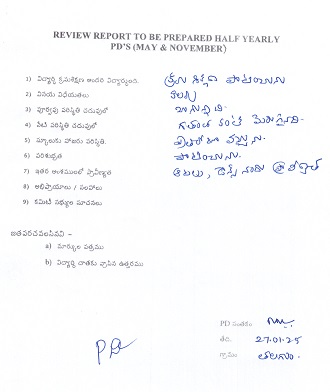 REVIEW REPORT TO BE PREPARED HALF YEARLY
PD'S (MAY & NOVEMBER)
1) విద్యార్థి క్రమశిక్షణ అందరి విద్యార్థులు క్రమ శిక్షణ పాటించును
2) వినయ విధేయతలు కలవు
3) పూర్వపు పరిస్థితి చదువులో బాగున్నది.
4) నేటి పరిస్థితి చదువులో గతం కంటే మెరుగైనది.
5) స్కూలుకు హాజరు పరిస్థితి.
6) పరిశుభ్రత పాటించును.
7) ఇతర అంశములలో ప్రావీణ్యత ఆటలు, డాన్స్
8) అభిప్రాయాలు / సలహాలు
9) కమిటీ సభ్యుల సూచనలు
జతపరచవలసినవి –
a) మార్కుల పత్రము
b) విద్యార్థి చేతకు వ్రాసిన ఉత్తరము
PD సంతకం
తేది. 27.01.25
గ్రామం